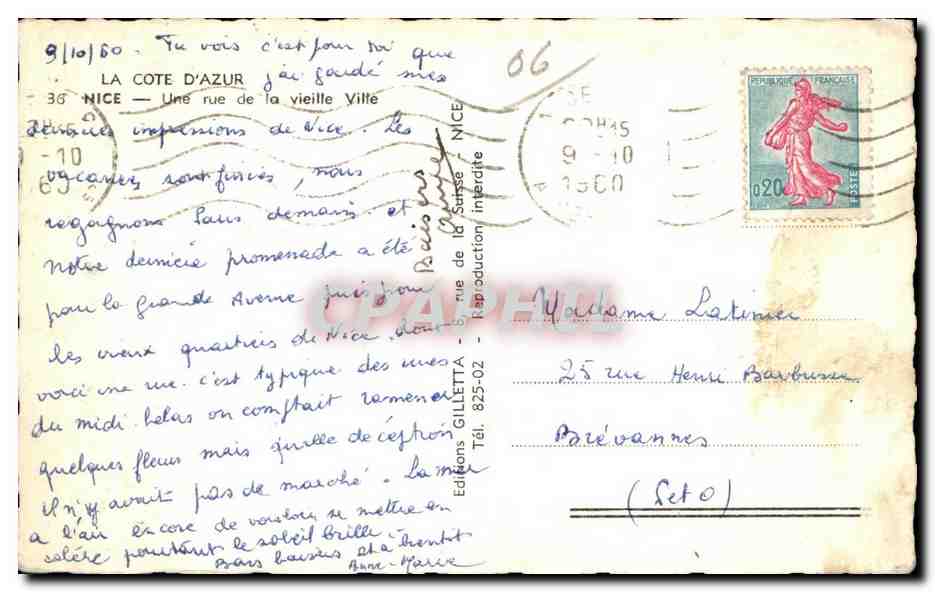 9/10/60. Tu vois c'est pour toi que
j'ai gardé mes
LA COTE D'AZUR
36 NICE — Une rue de la vieille Ville
dernières impressions de Nice. Les
vacances sont finies, nous
regagnons Paris demain et
notre dernière promenade a été
pour la grande Avenue puis pour
les vieux quartiers de Nice dont
voici une rue. c'est typique des rues
du midi. helas on comptait ramener
quelques fleurs mais
il n'y avait pas de marché. La mer
a l'air encore de vouloir se mettre en
colère pourtant le soleil brille.
Bons baisers et à bientôt
Anne-Marie
Baisers
Editions GILLETTA - 8, rue de la Suisse - NICE
Tél. 825-02 - Reproduction interdite
CPAPHIL
06
9 -10
1960
REPUBLIQUE FRANÇAISE
0,20
POSTES
Madame Latinier
25 rue Henri Barbusse
Brévannes
(S et O)